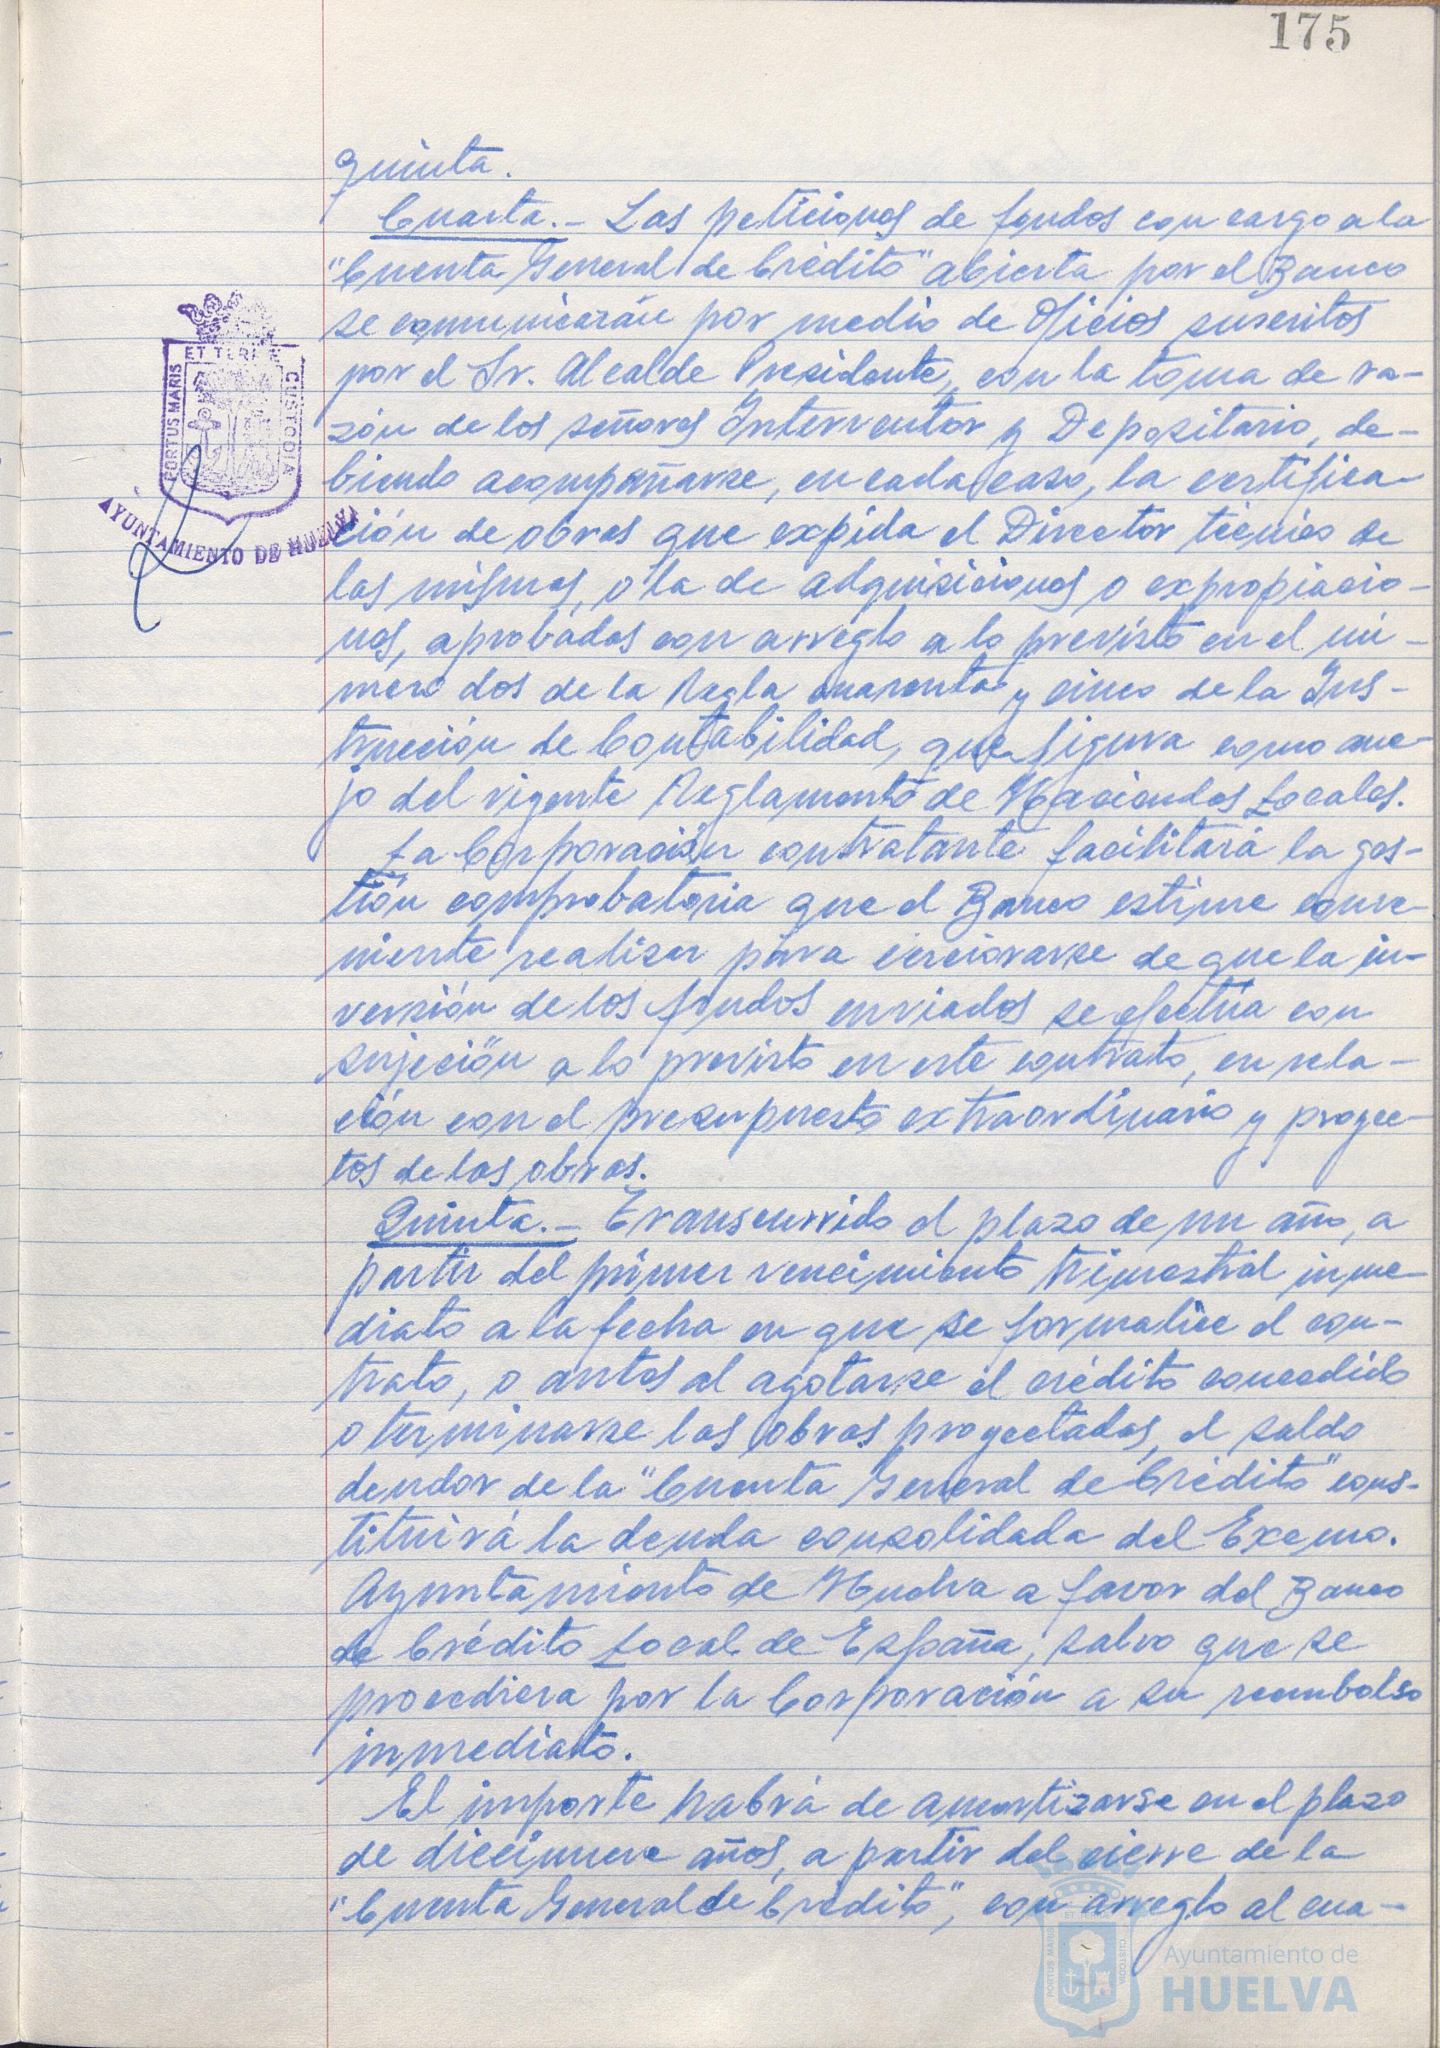 175
quinta.
Cuarta.- Las peticiones de fondos con cargo a la
"Cuenta General de Crédito" abierta por el Banco
se comunicarán por medio de Oficios suscritos
por el Sr. Alcalde Presidente, con la toma de ra-
zón de los señores Interventor y Depositario, de-
biendo acompañarse, en cada caso, la certifica-
ción de obras que expida el Director técnico de
las mismas, o la de adquisiciones o expropiacio-
nes, aprobadas con arreglo a lo previsto en el nú-
mero dos de la Regla cuarenta y cinco de la Ins-
trucción de Contabilidad, que figura como ane-
jo del vigente Reglamento de Haciendas Locales.
La Corporación contratante facilitará la ges-
tión comprobatoria que el Banco estime conve-
niente realizar para cerciorarse de que la in-
versión de los fondos enviados se efectúa con
sujeción a lo previsto en este contrato, en rela-
ción con el presupuesto extraordinario y proyec-
tos de las obras.
Quinta.- Transcurrido el plazo de un año, a
partir del primer vencimiento trimestral inme-
diato a la fecha en que se formalice el con-
trato, o antes al agotarse el crédito concedido
o terminarse las obras proyectadas, el saldo
deudor de la "Cuenta General de Crédito" cons-
tituirá la deuda consolidada del Excmo.
Ayuntamiento de Huelva a favor del Banco
de Crédito Local de España, salvo que se
procediera por la Corporación a su reembolso
inmediato.
El importe habrá de amortizarse en el plazo
de diecinueve años, a partir del cierre de la
"Cuenta General de Crédito", con arreglo al cua-
PORTUS MARIS
ET TERRE
CUSTODIA
AYUNTAMIENTO DE HUELVA
Ayuntamiento de
HUELVA